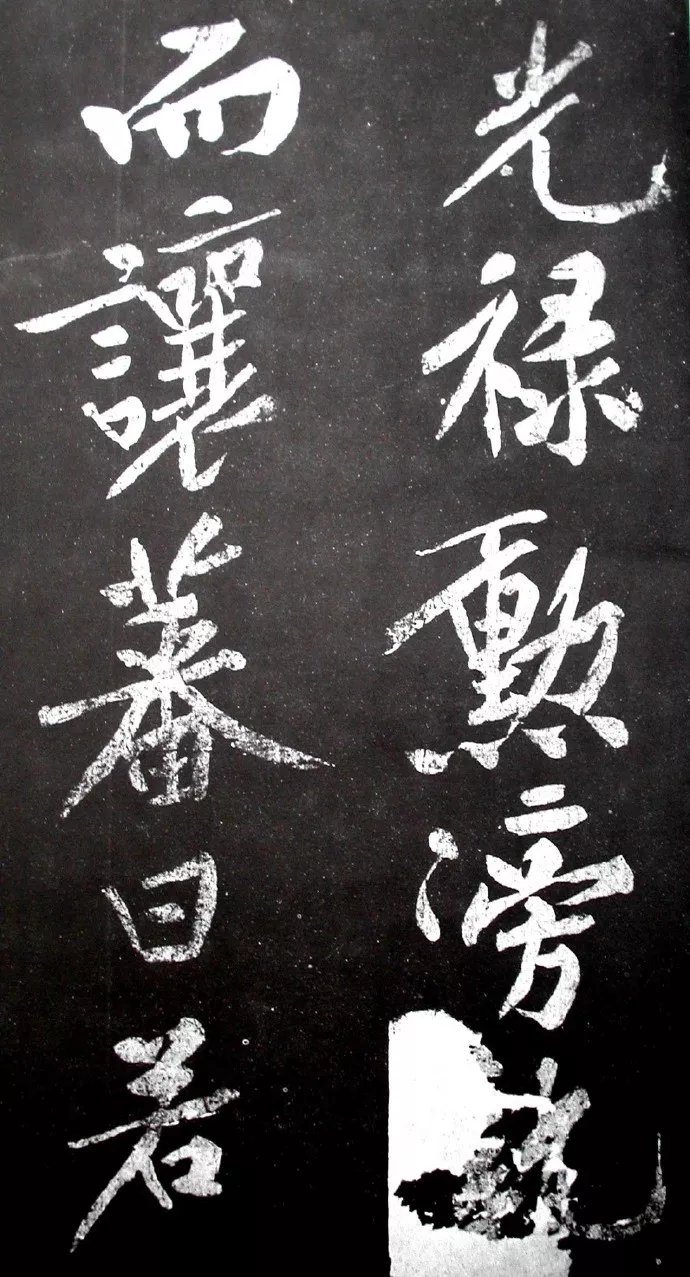 光禄勳滂
而讓蕃曰若